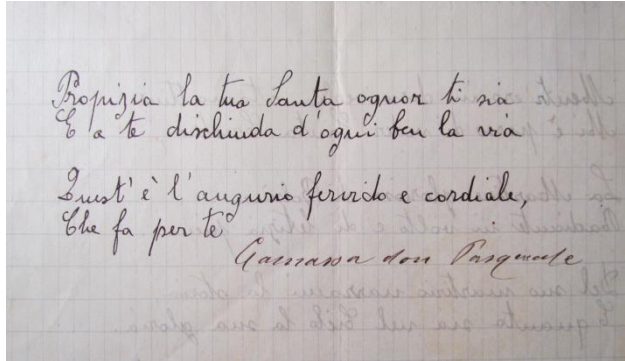 Propizia la tua Santa ognor ti sia
E a te dischiuda d'ogni ben la via
Quest' è l'augurio fervido e cordiale,
Che fa per te
Camassa don Pasquale